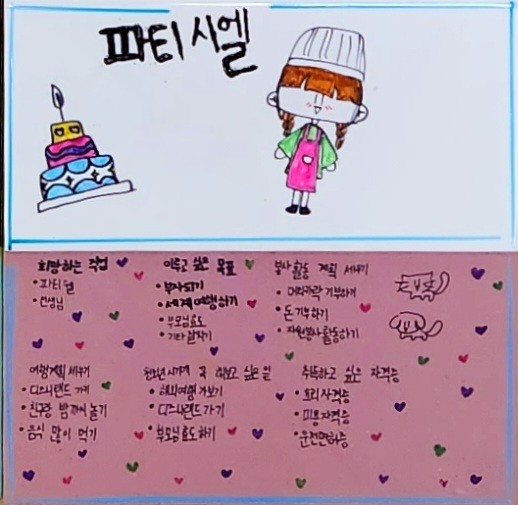 파티시엘
희망하는 직업
• 파티쉘
• 선생님
이루고 싶은 목표
• 부자되기
• 세계여행하기
• 부모님효도
• 기타 잘치기
봉사 활동 계획 세우기
• 머리카락 기부하기
• 돈 기부하기
• 자원봉사 활동하기
여행계획 세우기
• 디즈니랜드 가기
• 친구랑 밤까지 놀기
• 음식 많이 먹기
꼭 해보고 싶은 일
• 해외여행 가보기
• 디즈니랜드 가기
• 부모님 효도하기
취득하고 싶은 자격증
• 요리사 자격증
• 미용 자격증
• 운전면허증